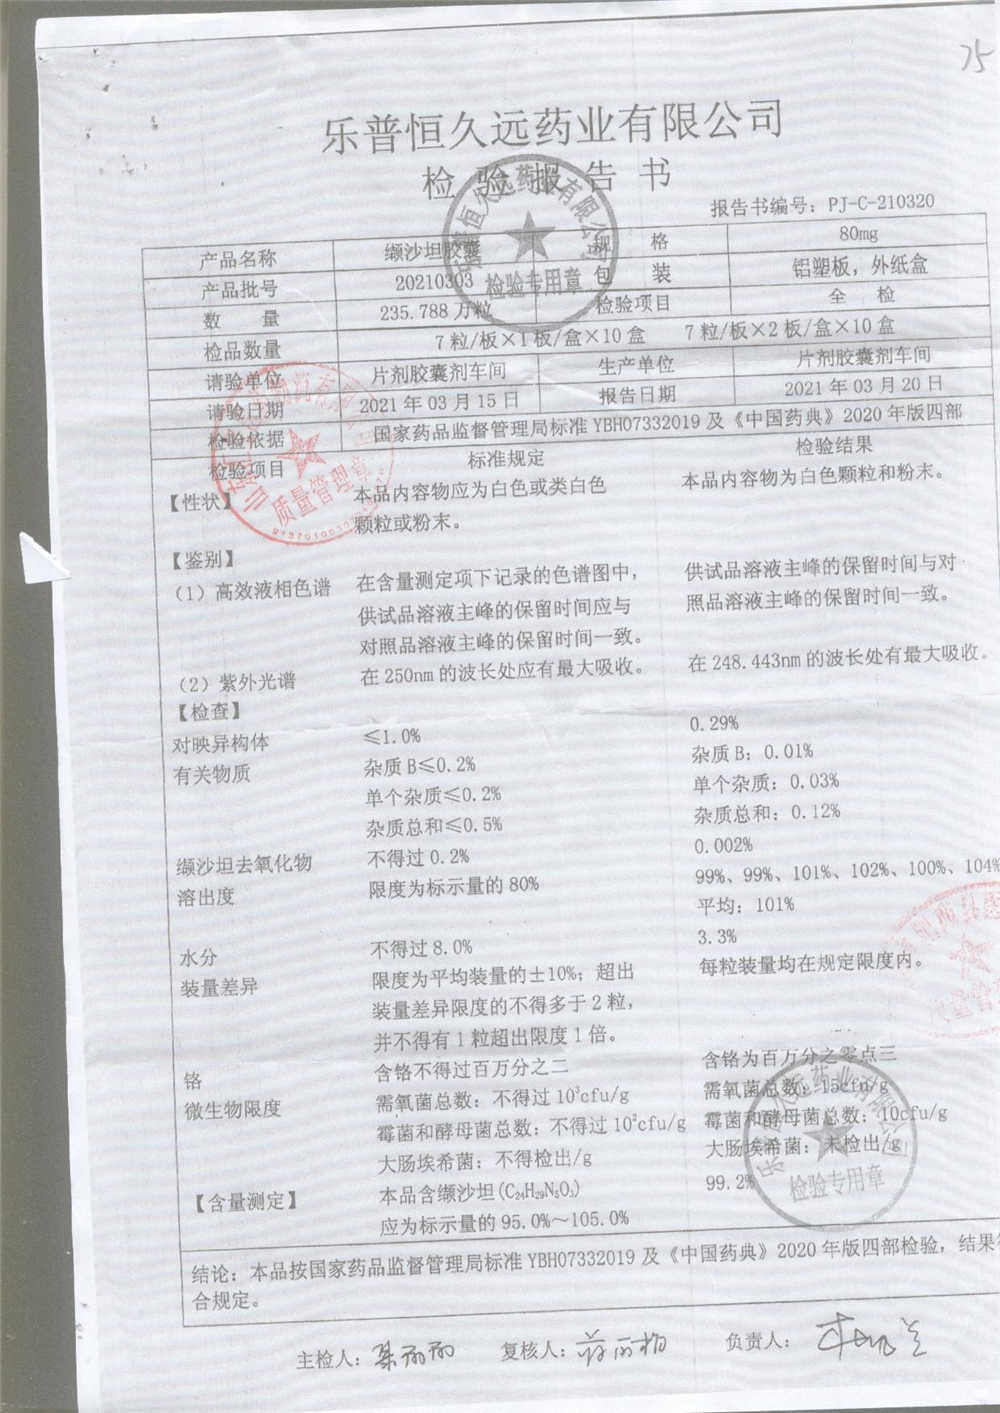 75
乐普恒久远药业有限公司
检验报告书
报告书编号：PJ-C-210320
产品名称 缬沙坦胶囊 规格 80mg
产品批号 20210303 包装 铝塑板，外纸盒
数量 235.788 万粒 检验项目 全检
检品数量 7 粒/板×1 板/盒×10 盒 7 粒/板×2 板/盒×10 盒
请验单位 片剂胶囊剂车间 生产单位 片剂胶囊剂车间
请验日期 2021 年 03 月 15 日 报告日期 2021 年 03 月 20 日
检验依据 国家药品监督管理局标准 YBH07332019 及《中国药典》2020 年版四部
检验项目 标准规定 检验结果
【性状】 本品内容物应为白色或类白色 本品内容物为白色颗粒和粉末。
颗粒或粉末。
【鉴别】
（1）高效液相色谱 在含量测定项下记录的色谱图中， 供试品溶液主峰的保留时间与对
供试品溶液主峰的保留时间应与 照品溶液主峰的保留时间一致。
对照品溶液主峰的保留时间一致。
（2）紫外光谱 在 250nm 的波长处应有最大吸收。 在 248.443nm 的波长处有最大吸收。
【检查】
对映异构体 ≤1.0% 0.29%
有关物质 杂质 B≤0.2% 杂质 B：0.01%
单个杂质≤0.2% 单个杂质：0.03%
杂质总和≤0.5% 杂质总和：0.12%
缬沙坦去氧化物 不得过 0.2% 0.002%
溶出度 限度为标示量的 80% 99%、99%、101%、102%、100%、104%
平均：101%
水分 不得过 8.0% 3.3%
装量差异 限度为平均装量的±10%；超出 每粒装量均在规定限度内。
装量差异限度的不得多于 2 粒，
并不得有 1 粒超出限度 1 倍。
铬 含铬不得过百万分之二 含铬为百万分之零点三
微生物限度 需氧菌总数：不得过 10³cfu/g 需氧菌总数：15cfu/g
霉菌和酵母菌总数：不得过 10²cfu/g 霉菌和酵母菌总数：10cfu/g
大肠埃希菌：不得检出/g 大肠埃希菌：未检出/g
【含量测定】 本品含缬沙坦(C₂₄H₂₉N₅O₃) 99.2%
应为标示量的 95.0%～105.0%
结论：本品按国家药品监督管理局标准 YBH07332019 及《中国药典》2020 年版四部检验，结果符
合规定。
主检人： 复核人： 负责人：
检验专用章
质量管理章
检验专用章